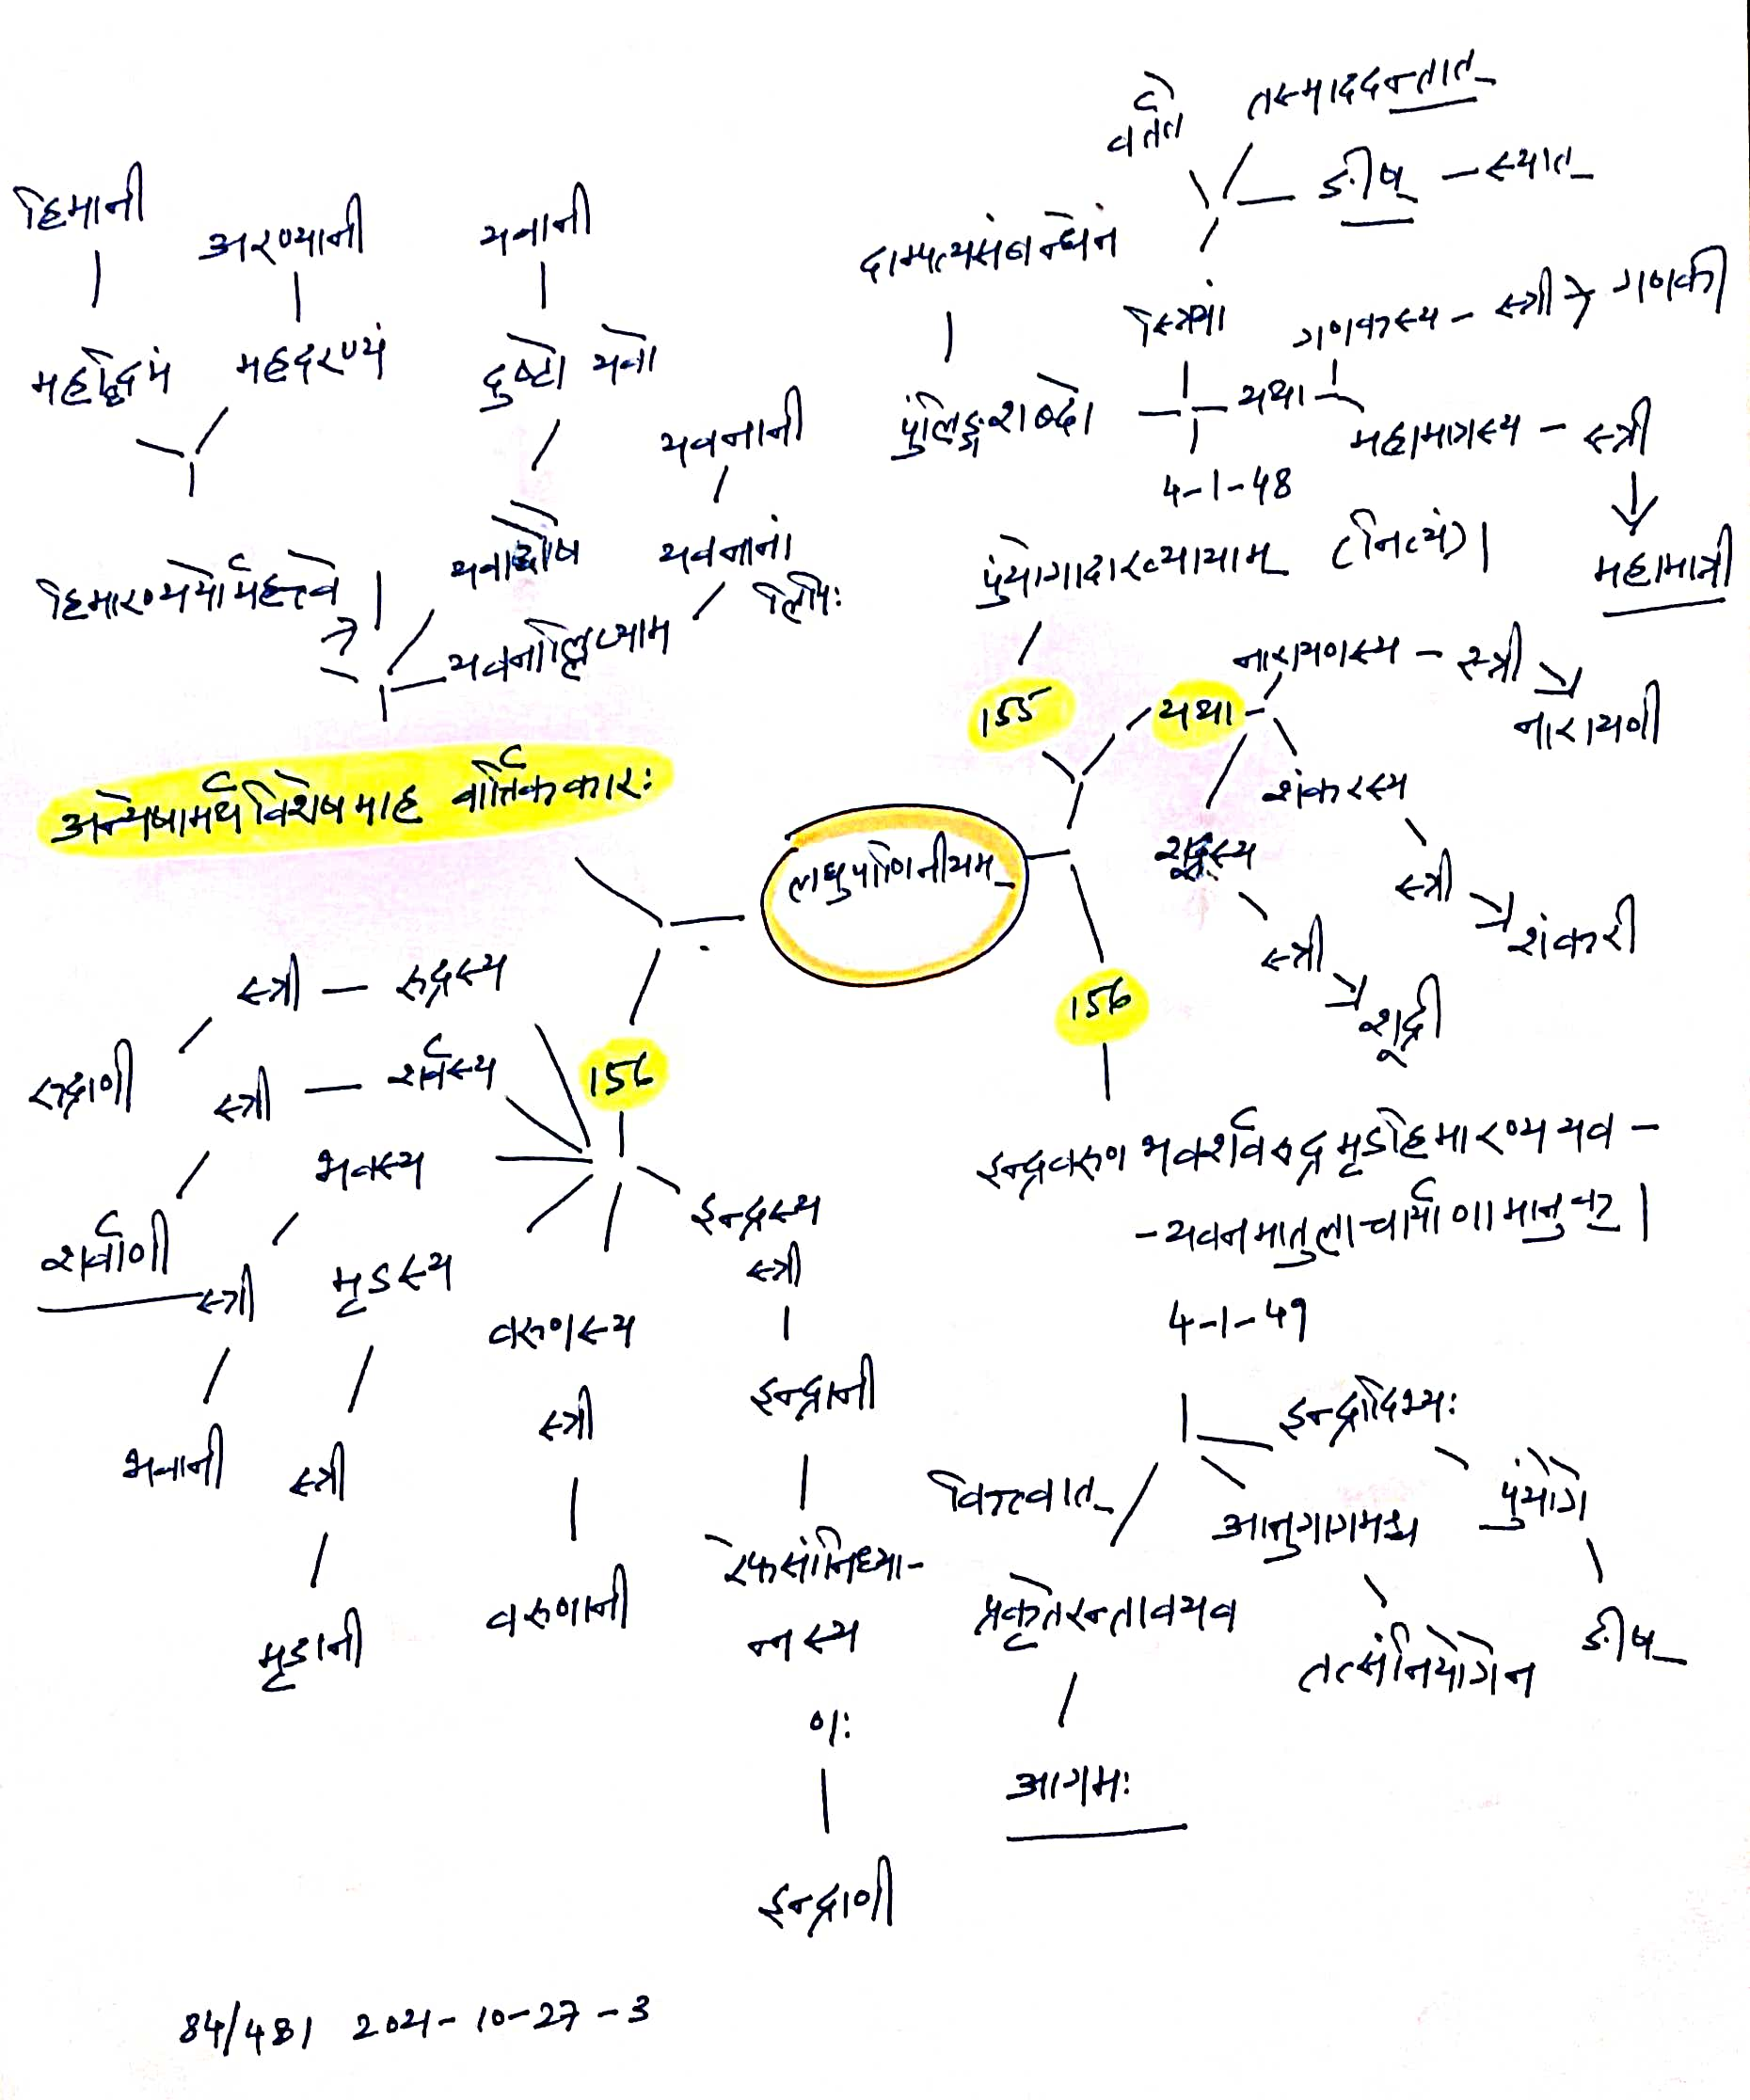 लघुपाणिनीयम्
155
पुंयोगादाख्यायाम् (नित्यं) |
4-1-48
पुंलिङ्गशब्दो
दाम्पत्यसंबन्धेन
स्त्रियां
वर्तते
तस्माददन्तात्
ङीष् - स्यात्
यथा
गणकस्य - स्त्री → गणकी
महामात्रस्य - स्त्री
महामात्री
यथा
नारायणस्य - स्त्री
नारायणी
शंकरस्य
स्त्री
शंकरी
शूद्रस्य
स्त्री
शूद्री
156
इन्द्रवरुणभवशर्वरुद्रमृडहिमारण्ययव -
- यवनमातुलाचार्याणामानुक् |
4-1-49
इन्द्रादिभ्यः
पुंयोगे
ङीष्
आनुगागमश्च
तत्संनियोगेन
कित्त्वात्
प्रकृतेरन्तावयव
आगमः
156
इन्द्रस्य
स्त्री
इन्द्रानी
रेफसांनिध्या-
न्नस्य
णः
इन्द्राणी
वरुणस्य
स्त्री
वरुणानी
मृडस्य
स्त्री
मृडानी
भवस्य
स्त्री
भवानी
शर्वस्य
स्त्री
शर्वाणी
रुद्रस्य
स्त्री
रुद्राणी
अन्येषामर्थविशेषमाह वार्तिककारः
हिमारण्ययोर्महत्त्वे |
महद्धिमं
हिमानी
महदरण्यं
अरण्यानी
यवाद्दोषे
दुष्टो यवो
यवानी
यवनाल्लिप्याम्
यवनानां
लिपिः
यवनानी
84/481 2021-10-27-3